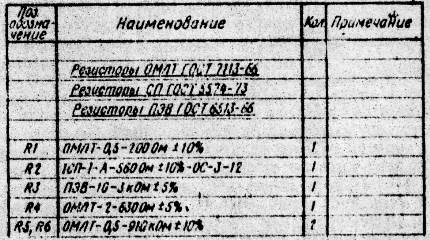 Поз. обозначение Наименование Кол. Примечание
Резисторы ОМЛТ ГОСТ 7113-66
Резисторы СП ГОСТ 5574-73
Резисторы ПЭВ ГОСТ 6513-66
R1 ОМЛТ-0,5-200 Ом ±10% 1
R2 1СП-1-А-560 Ом ±10%-ОС-3-12 1
R3 ПЭВ-10-3 кОм ±5% 1
R4 ОМЛТ-2-630 Ом ±5% 1
R5, R6 ОМЛТ-0,5-910 кОм ±10% 2